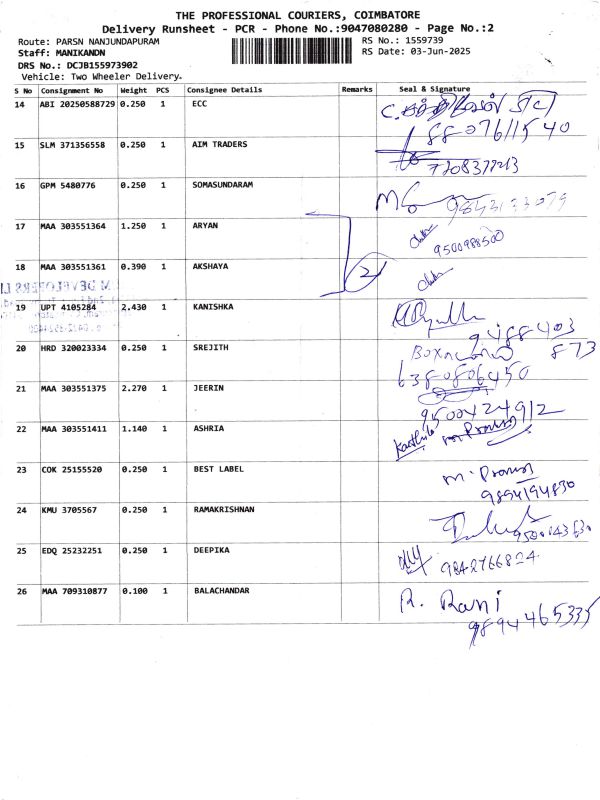 THE PROFESSIONAL COURIERS, COIMBATORE
Delivery Runsheet - PCR - Phone No.:9047080280 - Page No.:2
Route: PARSN NANJUNDAPURAM
RS No.: 1559739
Staff: MANIKANDN
RS Date: 03-Jun-2025
DRS No.: DCJB155973902
Vehicle: Two Wheeler Delivery.
S No Consignment No Weight PCS Consignee Details Remarks Seal & Signature
14 ABI 20250588729 0.250 1 ECC
8807611540
15 SLM 371356558 0.250 1 AIM TRADERS
16 GPM 5480776 0.250 1 SOMASUNDARAM
17 MAA 303551364 1.250 1 ARYAN
9500988500
18 MAA 303551361 0.390 1 AKSHAYA
2
19 UPT 4105284 2.430 1 KANISHKA
9488403
873
20 HRD 320023334 0.250 1 SREJITH
6380806450
21 MAA 303551375 2.270 1 JEERIN
9500424912
22 MAA 303551411 1.140 1 ASHRIA
23 COK 25155520 0.250 1 BEST LABEL
9894194830
24 KMU 3705567 0.250 1 RAMAKRISHNAN
25 EDQ 25232251 0.250 1 DEEPIKA
9842766824
26 MAA 709310877 0.100 1 BALACHANDAR R. Rani
9894465335